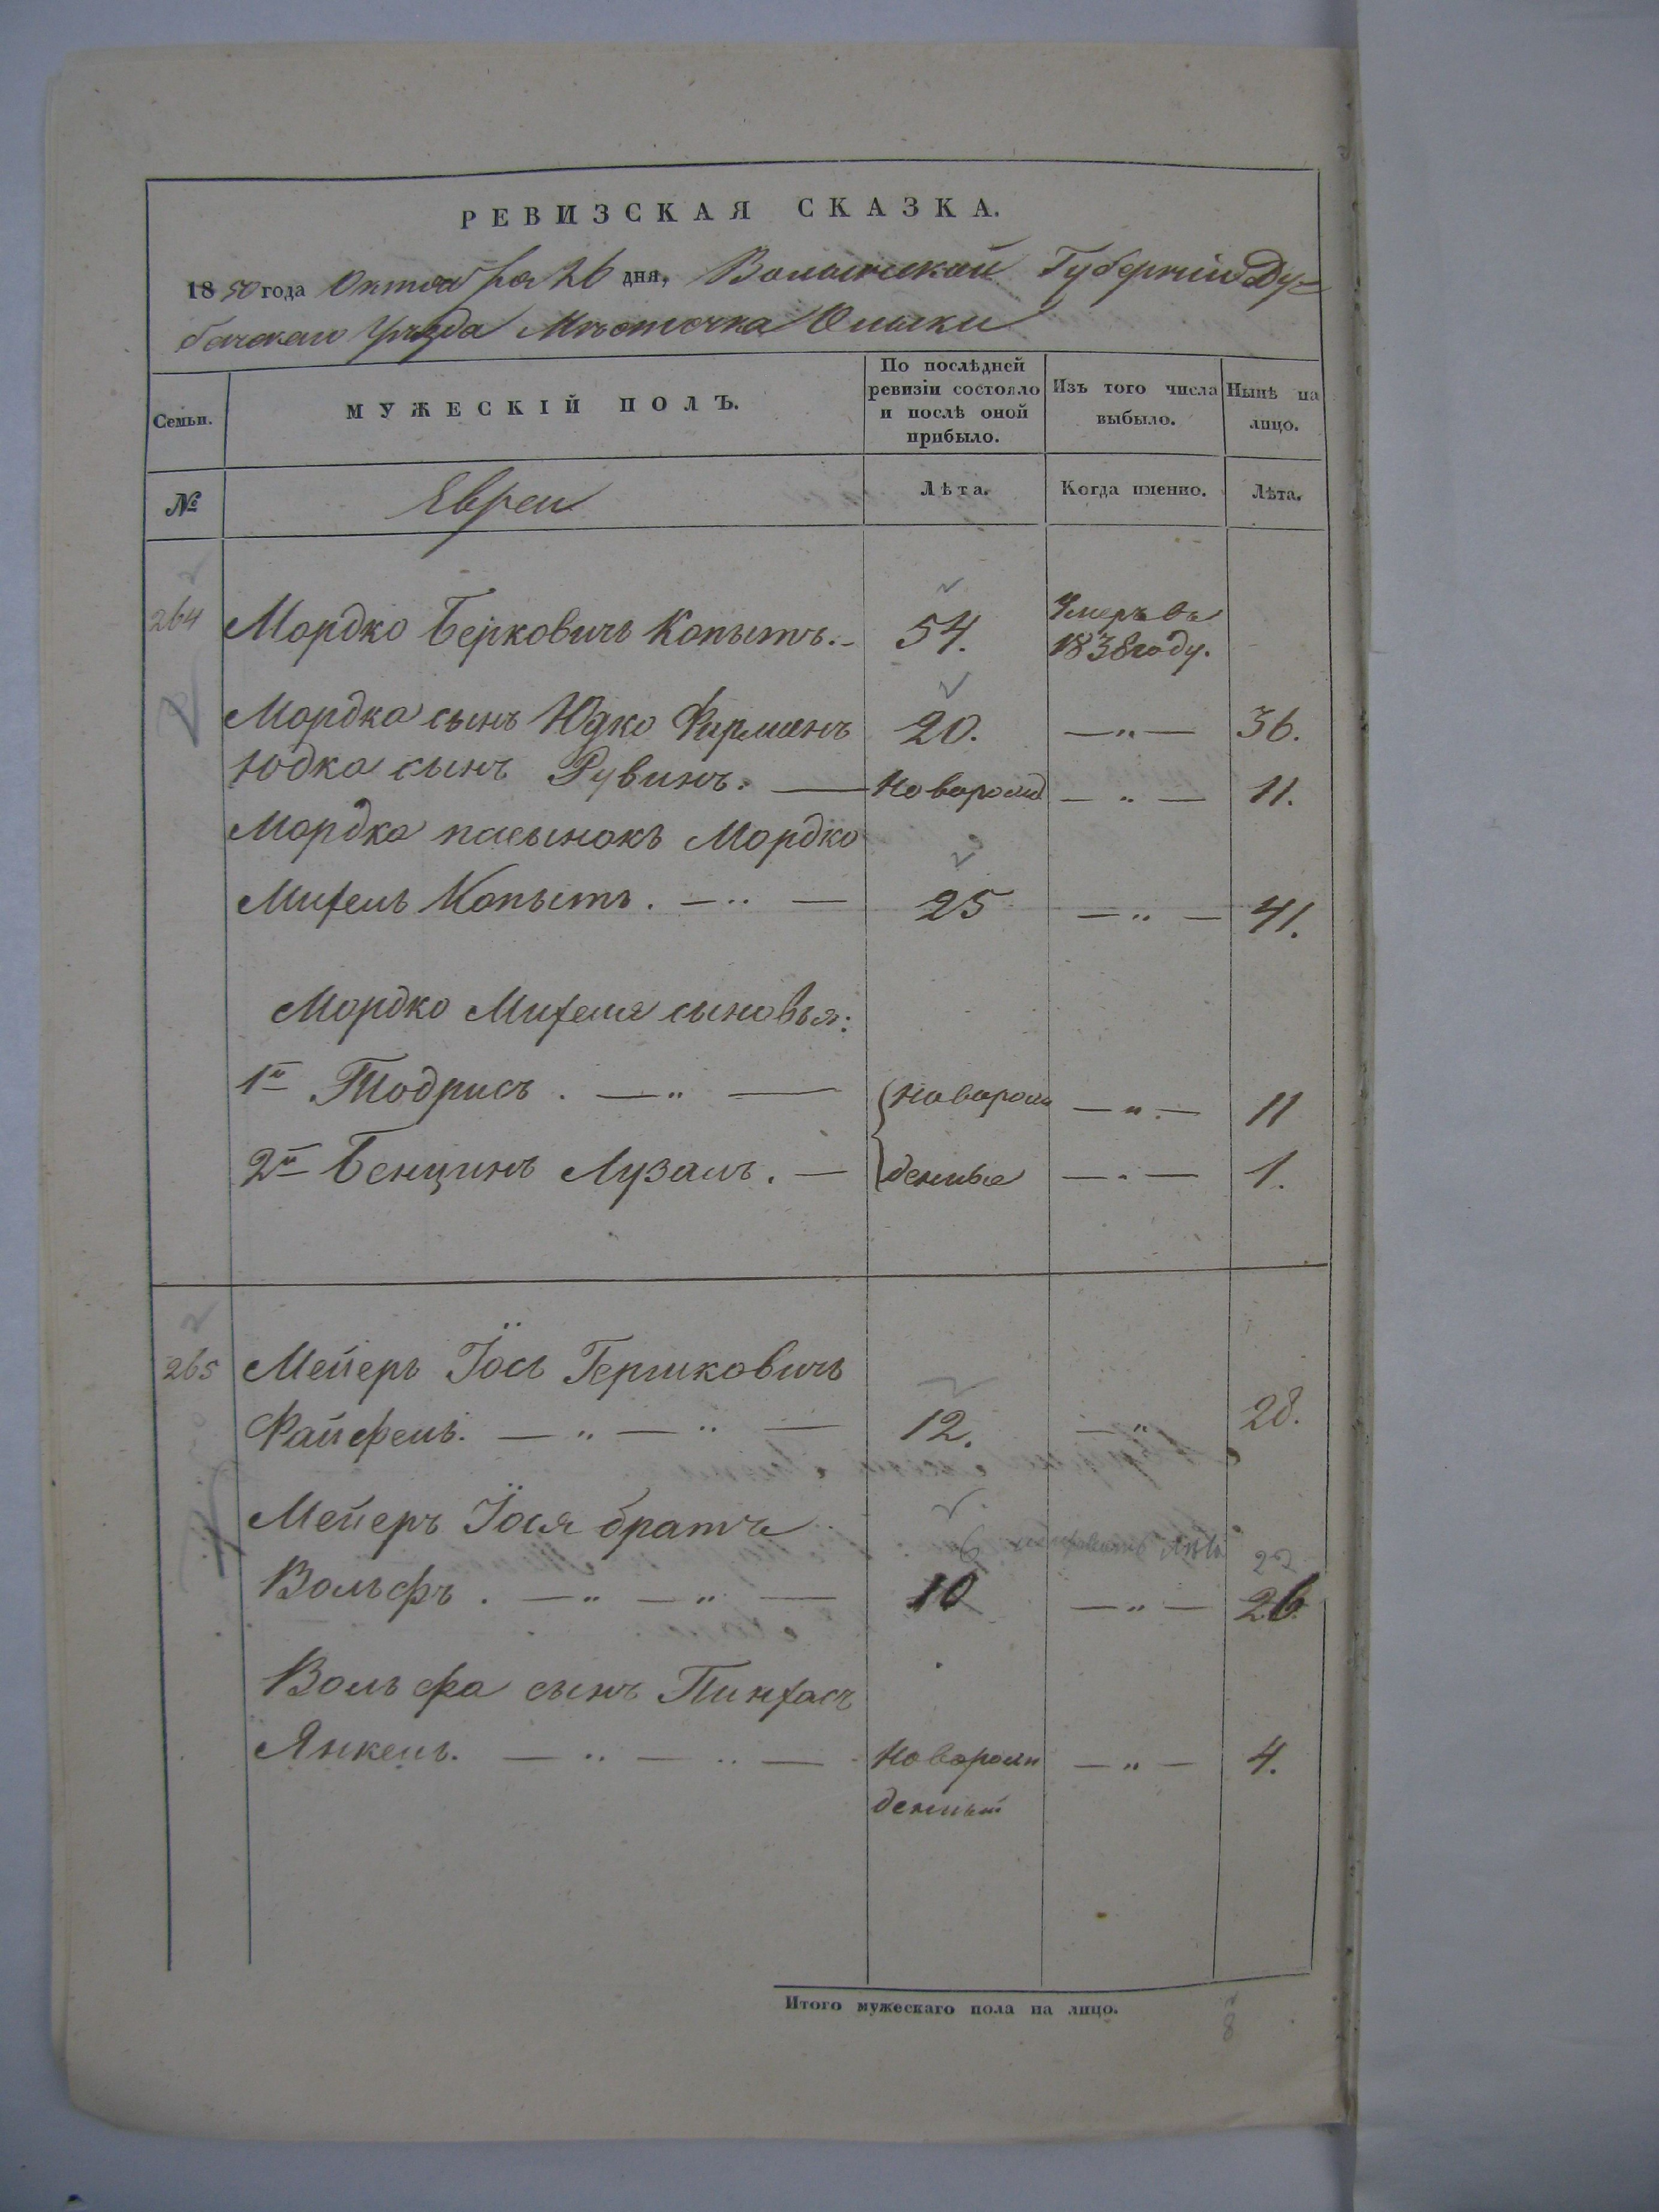 РЕВИЗСКАЯ СКАЗКА.
1850 года Октября 26 дня, Волынской Губерніи Ду-
бенскаго Уѣзда Мѣсточка Олыки
Семьи.
МУЖЕСКІЙ ПОЛЪ.
По послѣдней ревизіи состояло и послѣ оной прибыло.
Изъ того числа выбыло.
Нынѣ на лицо.
№
Евреи
Лѣта.
Когда именно.
Лѣта.
264 Мордко Берковичъ Копытъ. 54. Умеръ въ 1838 году.
Мордка сынъ Юдко Фирманъ 20. — „ — 36.
Юдка сынъ Рувинъ. — Новорожд — „ — 11.
Мордка пасынокъ Мордко
Михель Копытъ. — „ — 25 — „ — 41.
Мордко Михеля сыновья:
1й Тодрисъ. — „ — Новорож — „ — 11
2й Бенционъ Лузаль. — денные — „ — 1.
265 Мейеръ Іось Гершковичъ
Файфель. — „ — „ — 12. — „ 28.
Мейеръ Іося братъ
6 22
Вольфъ. — „ — „ — 10 — „ — 26.
Вольфа сынъ Пинхасъ
Янкель. — „ — „ — Новорож — „ — 4.
денный
Итого мужескаго пола на лицо. 8